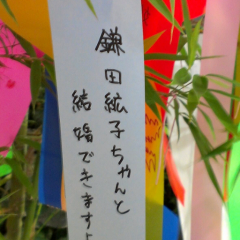 鎌田絋子ちゃんと
結婚できますよ